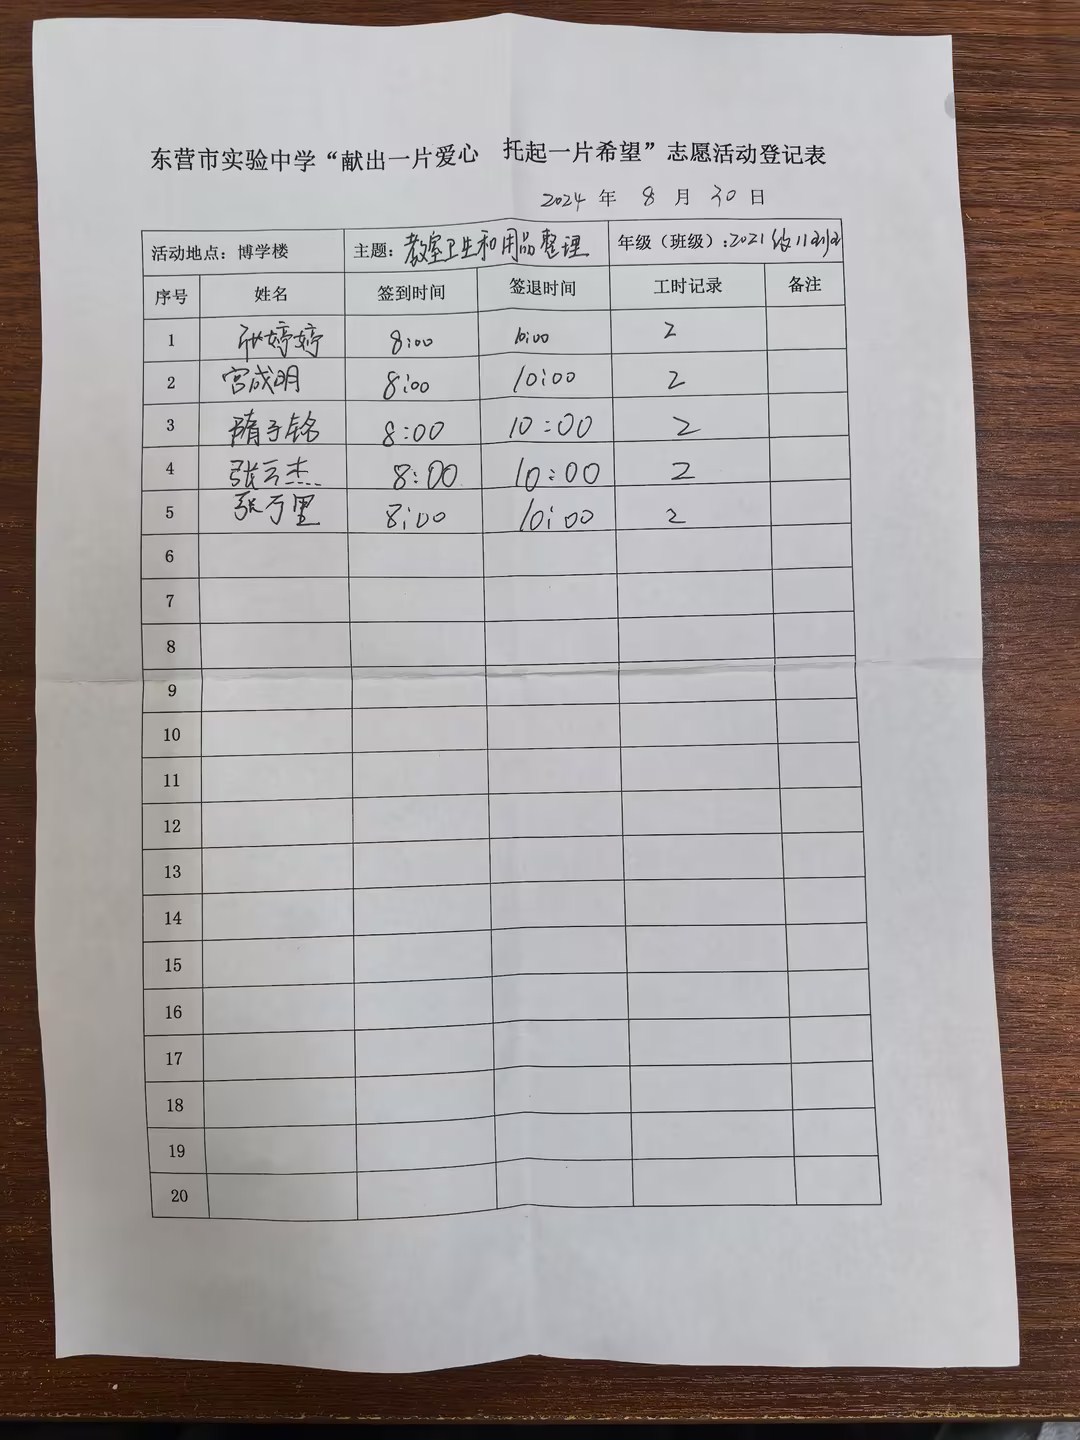 东营市实验中学“献出一片爱心 托起一片希望”志愿活动登记表
2024 年 8 月 30 日
活动地点：博学楼 主题：教室卫生和用品整理 年级（班级）：2021级11班
序号 姓名 签到时间 签退时间 工时记录 备注
1 张婷婷 8:00 10:00 2
2 宫成明 8:00 10:00 2
3 隋子铭 8:00 10:00 2
4 张云杰 8:00 10:00 2
5 张万里 8:00 10:00 2
6
7
8
9
10
11
12
13
14
15
16
17
18
19
20